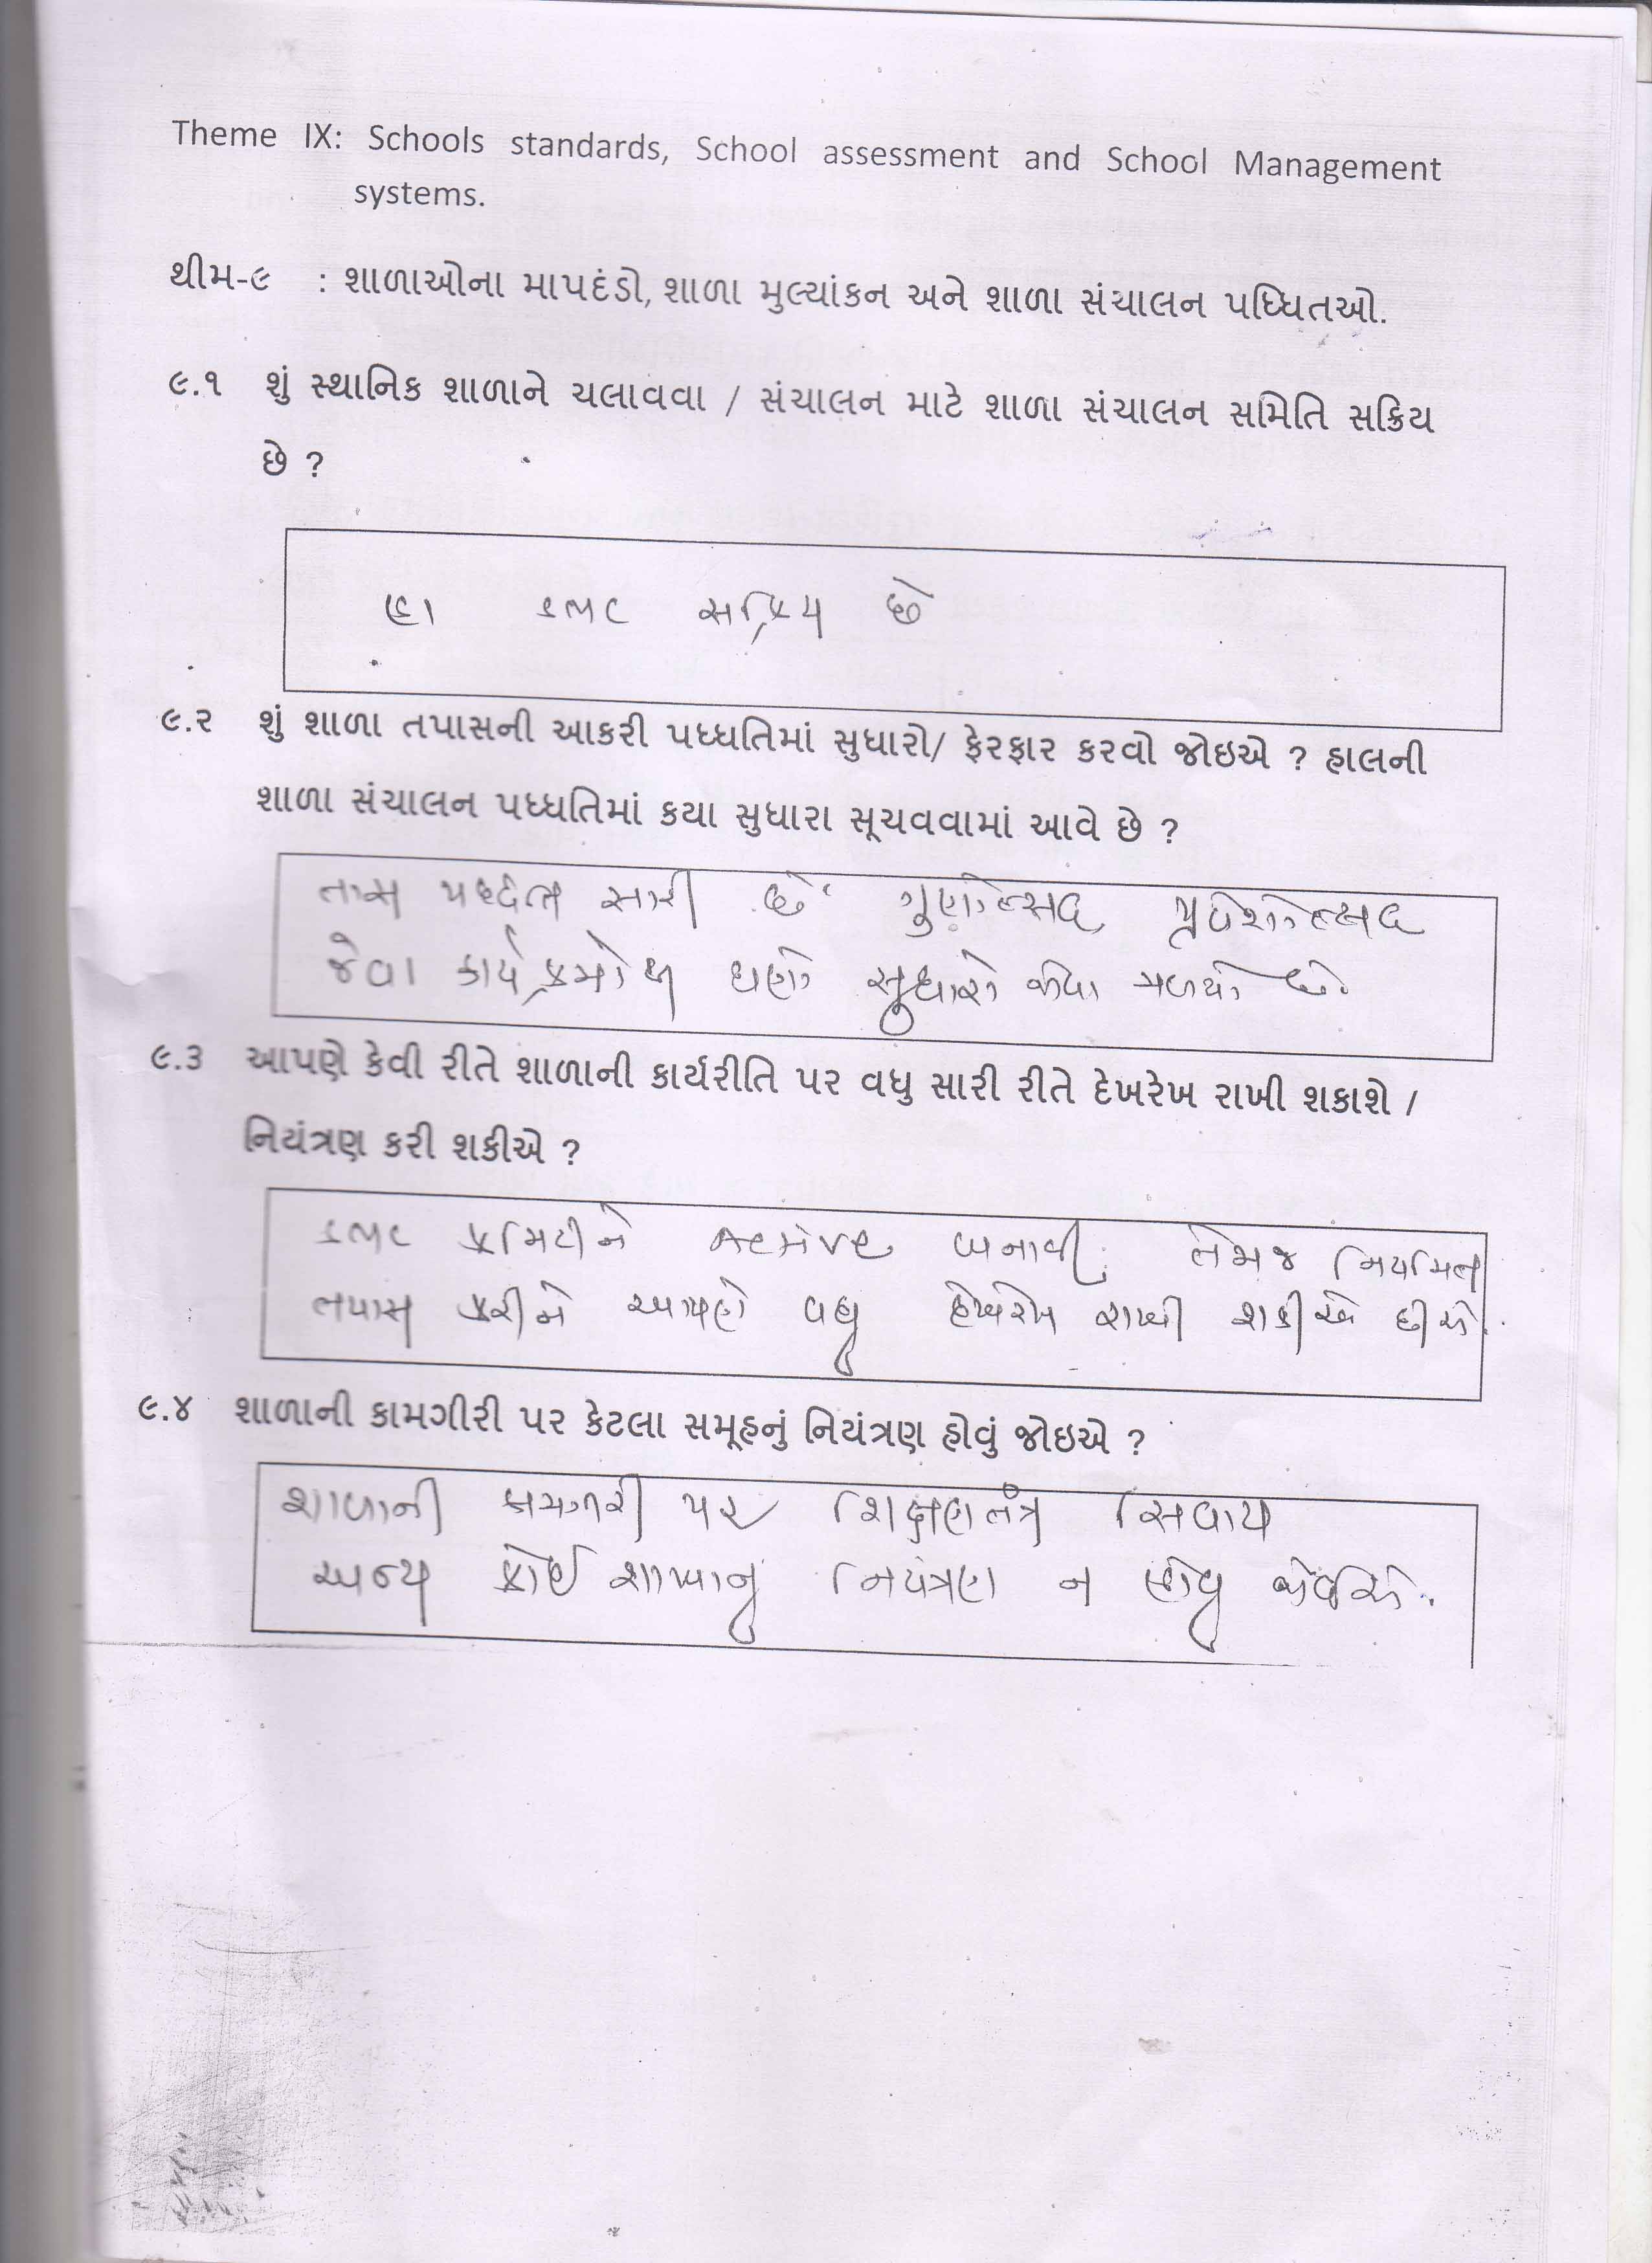 Theme IX: Schools standards, School assessment and School Management
systems.
થીમ-૯ : શાળાઓના માપદંડો, શાળા મુલ્યાંકન અને શાળા સંચાલન પધ્ધિતઓ.
૯.૧ શું સ્થાનિક શાળાને ચલાવવા / સંચાલન માટે શાળા સંચાલન સમિતિ સક્રિય
છે ?
હા SMC સક્રિય છે
૯.૨ શું શાળા તપાસની આકરી પધ્ધતિમાં સુધારો/ ફેરફાર કરવો જોઇએ ? હાલની
શાળા સંચાલન પધ્ધતિમાં કયા સુધારા સૂચવવામાં આવે છે ?
પધ્ધતિ સારી છે ગુણોત્સવ, પ્રવેશોત્સવ
જેવા કાર્યક્રમોથી ઘણો સુધારો જોવા મળ્યો છે.
૯.૩ આપણે કેવી રીતે શાળાની કાર્યરીતિ પર વધુ સારી રીતે દેખરેખ રાખી શકાશે /
નિયંત્રણ કરી શકીએ ?
SMC કમિટીને બનાવી તેમજ નિયમિત
તપાસ કરીને આપણે વધુ દેખરેખ રાખી શકીએ છીએ.
૯.૪ શાળાની કામગીરી પર કેટલા સમૂહનું નિયંત્રણ હોવું જોઇએ ?
શાળાની કામગીરી પર શિક્ષણતંત્ર સિવાય
અન્ય કોઈ શાખાનુ નિયંત્રણ ન હોવુ જોઈએ.